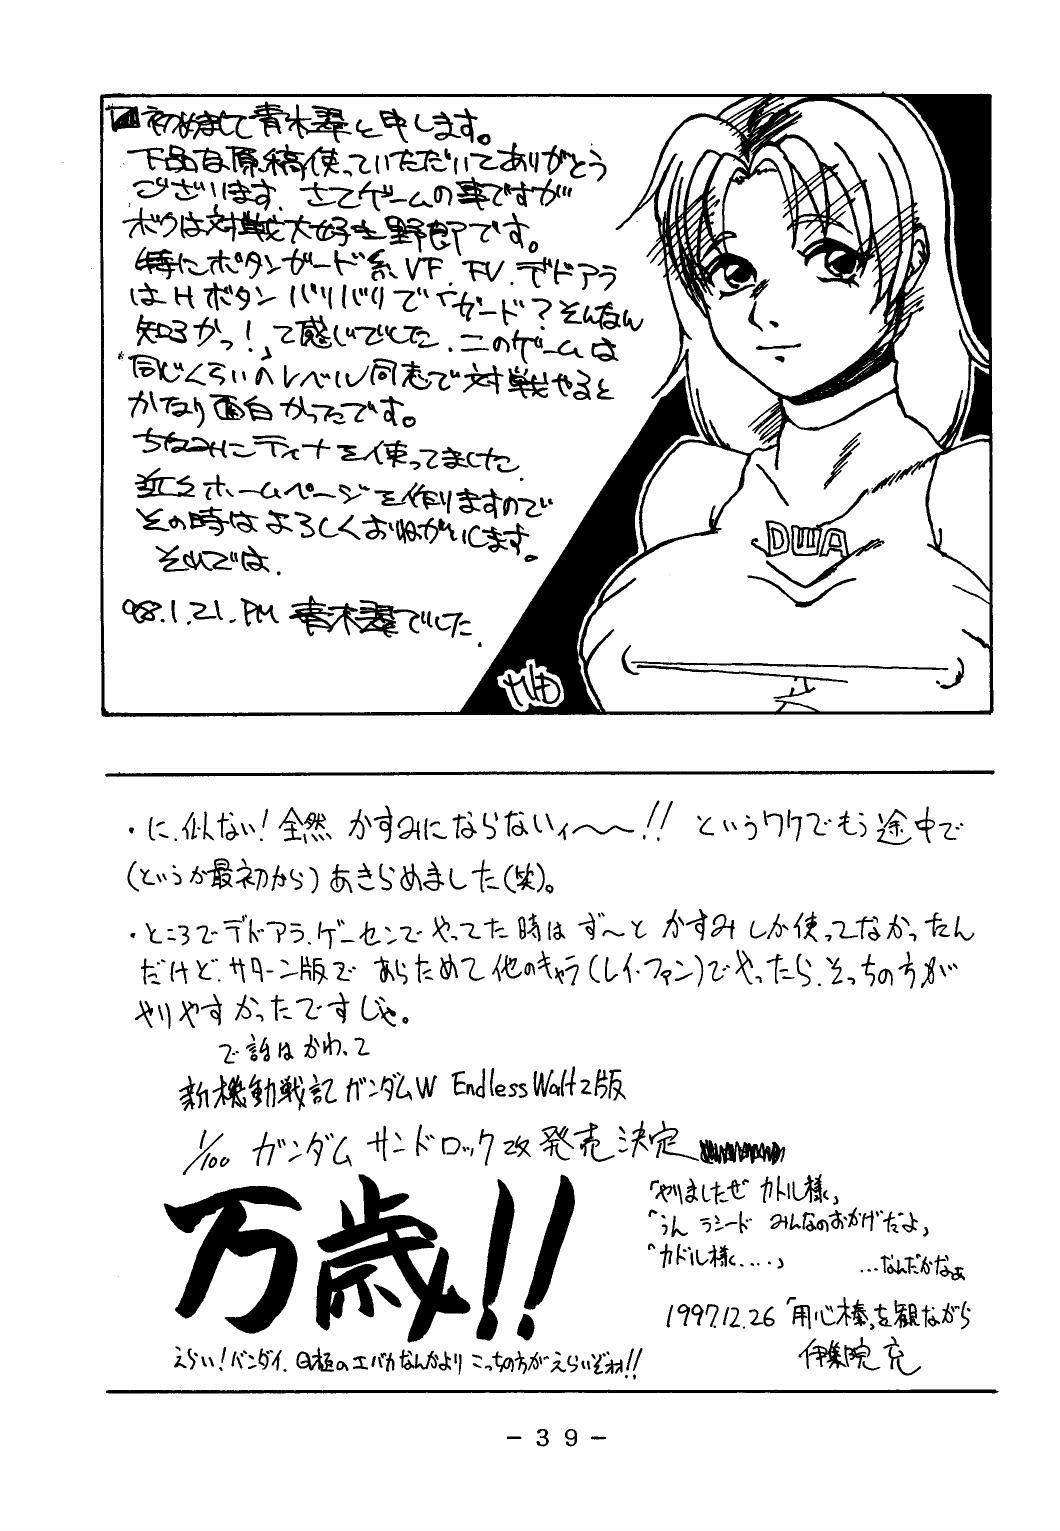 初めまして青木翠と申します。
下品な原稿使っていただいてありがとう
ございます。さてゲームの事ですが
ボクは対戦大好き野郎です。
特にボタンガード系VF、FV、デドアラ
はHボタンバリバリで「ガード?そんなん
知るかっ!」て感じでした。このゲームは
同じくらいのレベル同志で対戦やると
かなり面白かったです。
ちなみにティナを使ってました。
近々ホームページを作りますので
その時はよろしくおねがいします。
それでは。
'98.1.21.PM 青木翠でした。
DWA
・に、似ない!全然かすみにならないィ〜〜!!というワケでもう途中で
(というか最初から)あきらめました(笑)。
・ところでデドアラ、ゲーセンでやってた時はず〜とかすみしか使ってなかったん
だけど、サターン版であらためて他のキャラ(レイ・ファン)でやったら、そっちの方が
やりやすかったですじゃ。
で話はかわって
新機動戦記ガンダムW Endless Waltz版
1/100 ガンダムサンドロック改発売決定
万歳!!
「やりましたぜ カトル様」
「うん ラシード みんなのおかげだよ」
「カトル様……」 …なんだかなぁ
1997.12.26 「用心棒」を観ながら
伊集院 充
えらい!バンダイ、のエバカなんかよりこっちの方がえらいぞォォ!!
－39－